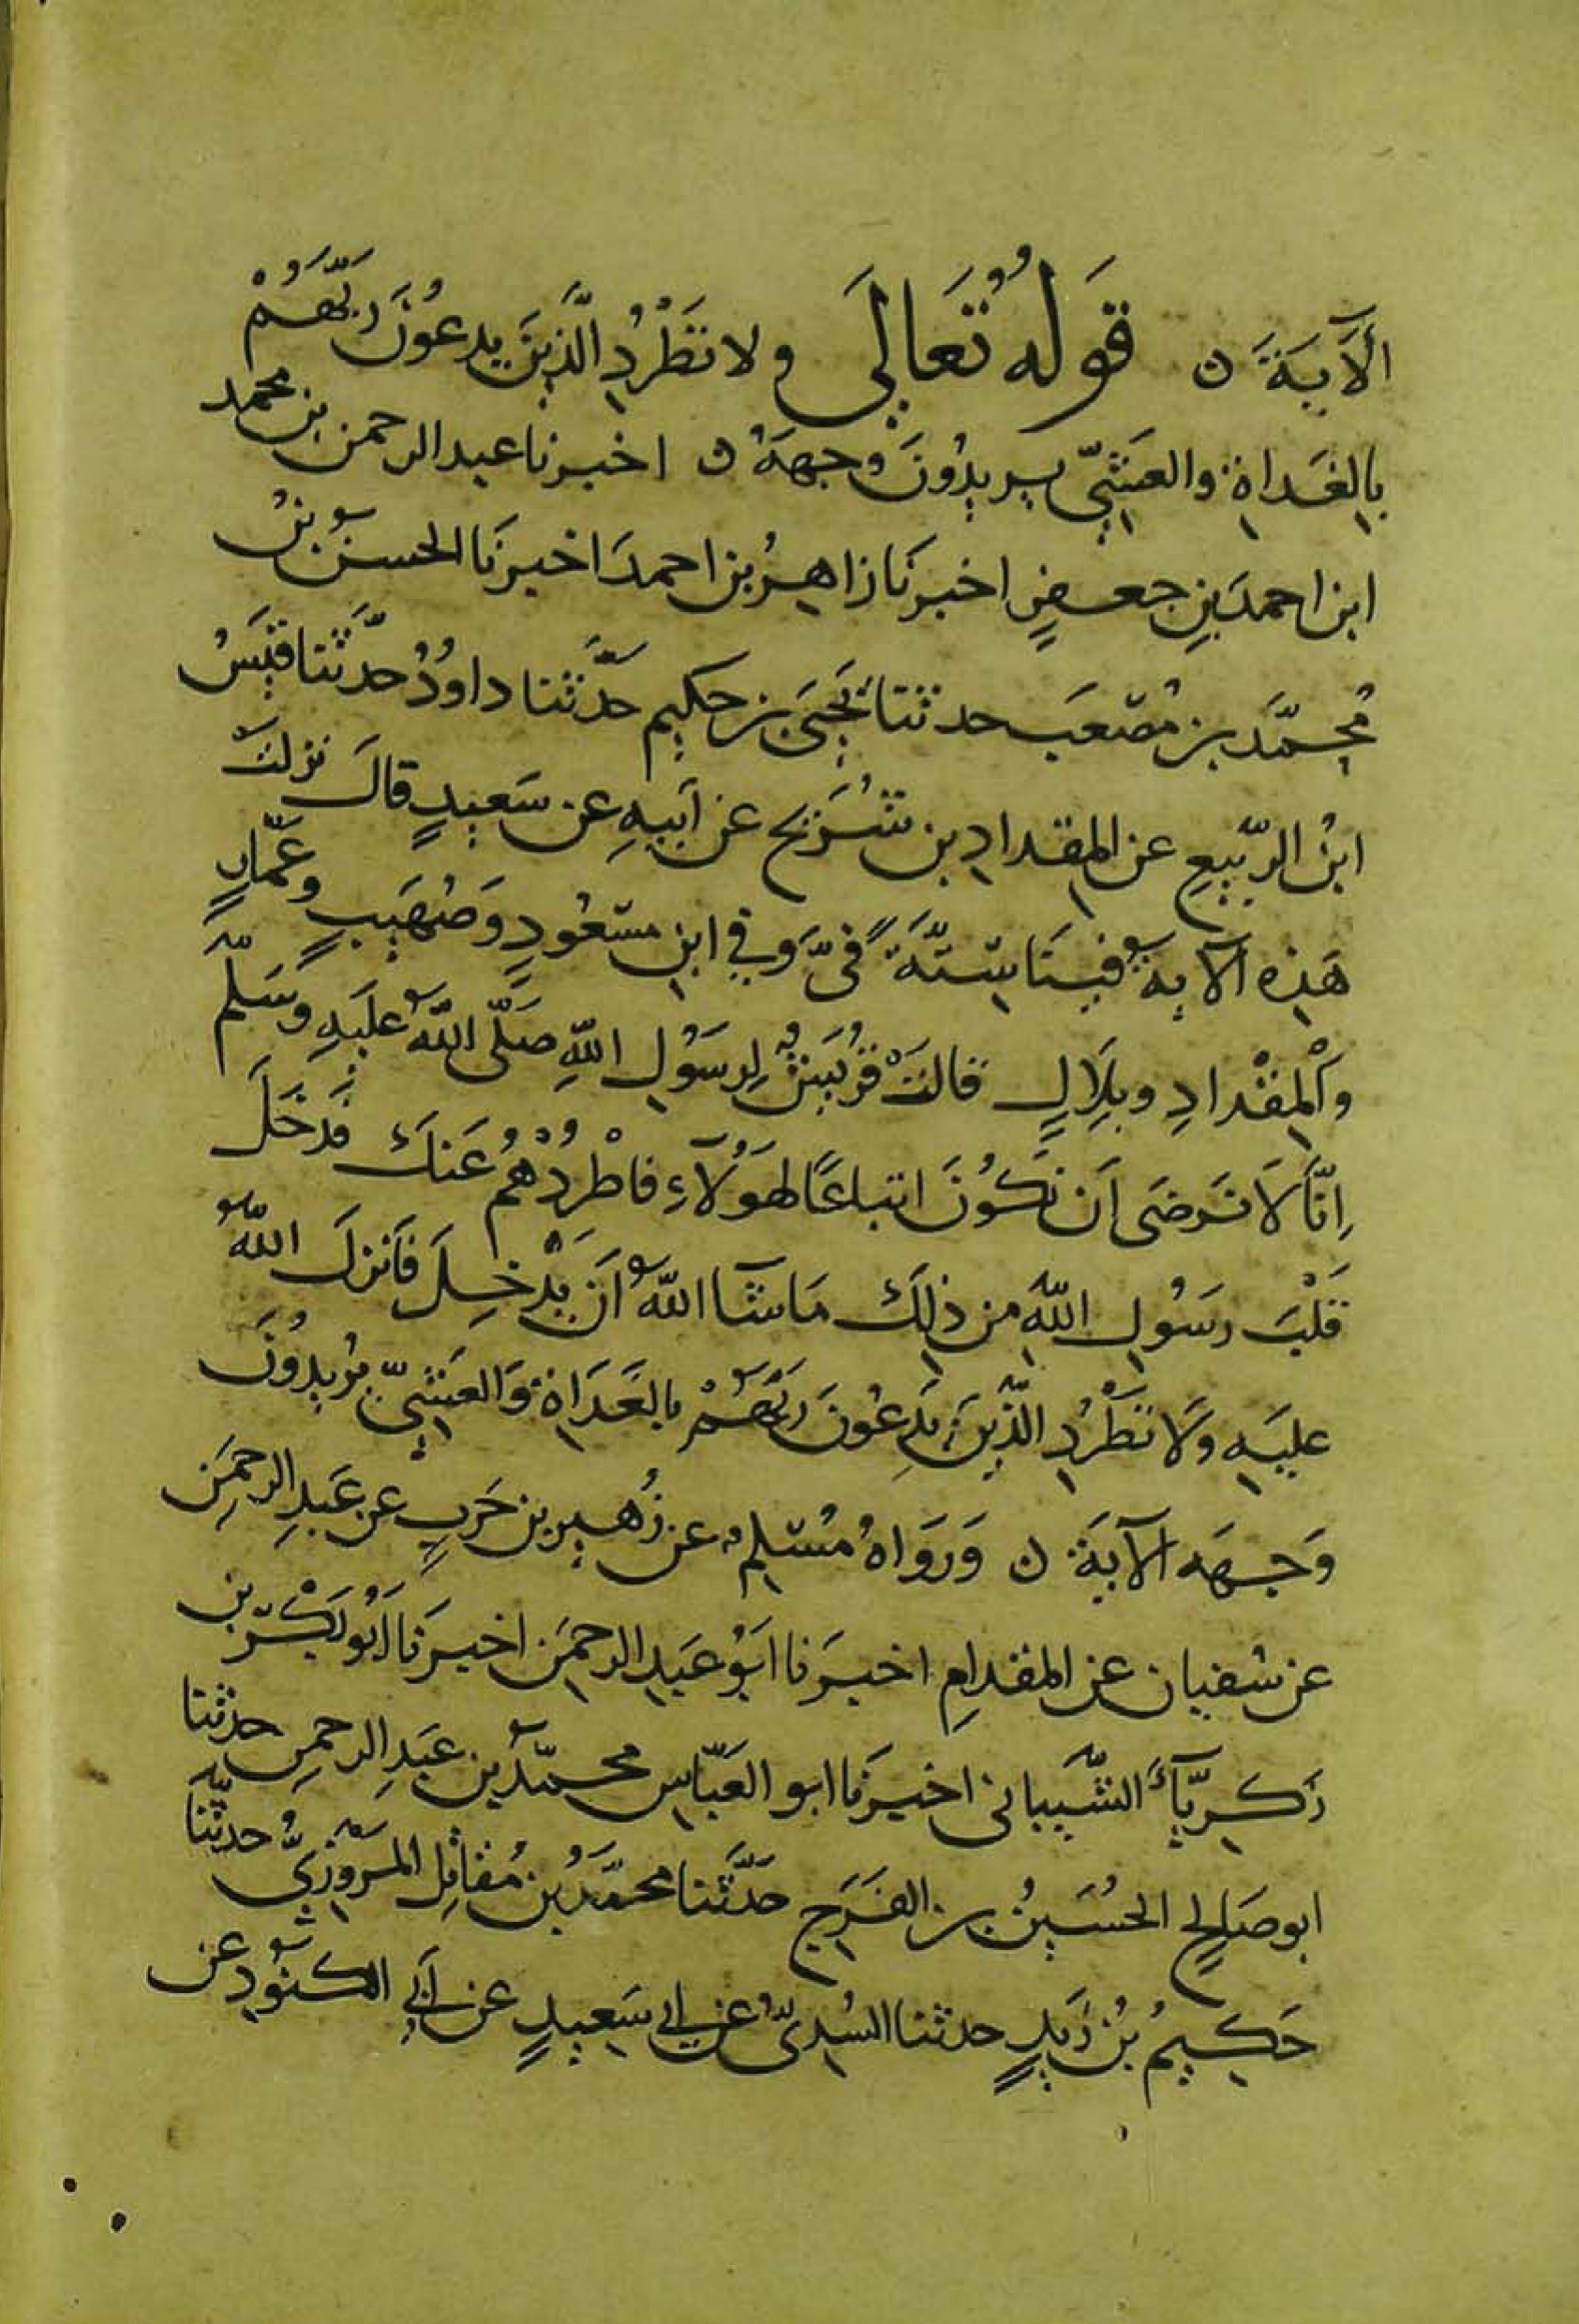 الْآيَةَ ن قَوْلُهُ تَعَالَى ولا تَطْرُدِ الَّذِينَ يدعُونَ رَبَّهُمْ
بِالغَدَاةِ والعَشِيِّ يريدُونَ وجهَهُ ن اخبرنا عبد الرحمن بن محمد
ابن احمدَ بنِ جعفرٍ اخبرنَا زاهِرُ بن احمدَ اخبرنَا الحسينُ بنُ
مُحمَّد بن مُصْعَب حدثنا يَحيَى بن حكيم حدَّثنا داوُدُ حدَّثنا قيسُ
ابنُ الرَّبيعِ عن المِقدادِ بن شُرَيْحٍ عن اَبيهِ عن سَعيدٍ قالَ نزلتْ
هَذِه الآيةُ فينَا سِتَّةً فيَّ وفي ابنِ مسْعُودٍ وَصُهَيْبٍ وعَمَّارٍ
وَالْمِقْدادِ وبِلَالٍ قالتْ قُرَيشٌ لِرسُولِ اللهِ صَلَّى اللهُ علَيهِ وسَلَّمَ
إِنَّا لَا نَرضَى اَن نَكُونَ اتباعًا لهَؤُلَآءِ فاطْرُدْهُمْ عَنكَ فدَخَلَ
قَلْبَ رسُولِ اللهِ من ذلِكَ مَا شَآ اللهُ اَن يَدْخلَ فاَنزلَ اللهُ
عليَهِ وَلَا تَطْرُدِ الَّذِينَ يَدعُونَ رَبَّهُمْ بالغَدَاةِ وَالعَشِيِّ يُرِيدُونَ
وَجهَه الآيةَ ن وَرَوَاهُ مُسْلِمٌ عن زُهيرِ بن حَربٍ عن عَبدِ الرحمَنِ
عن سُفيان عن المقدامِ اخبرَنا ابَوُ عَبدِ الرحمَن اخبرَنا اَبُو بَكْرِ بن
زكرِيَّآءَ الشَّيباني اخبرَنَا ابو العَبَّاسِ محمَّدُ بن عَبدِ الرحمنِ حدثنا
ابو صَالحٍ الحُسَينُ بن الفَرَجِ حَدَّثنا محمَّدُ بن مُقاتِل المَرْوَزِيُّ حدثنا
حَكيمُ بنُ زَيدٍ حدثنا السُدِّيُّ عن ابي سَعيدٍ عن اَبي الكنُودِ عن